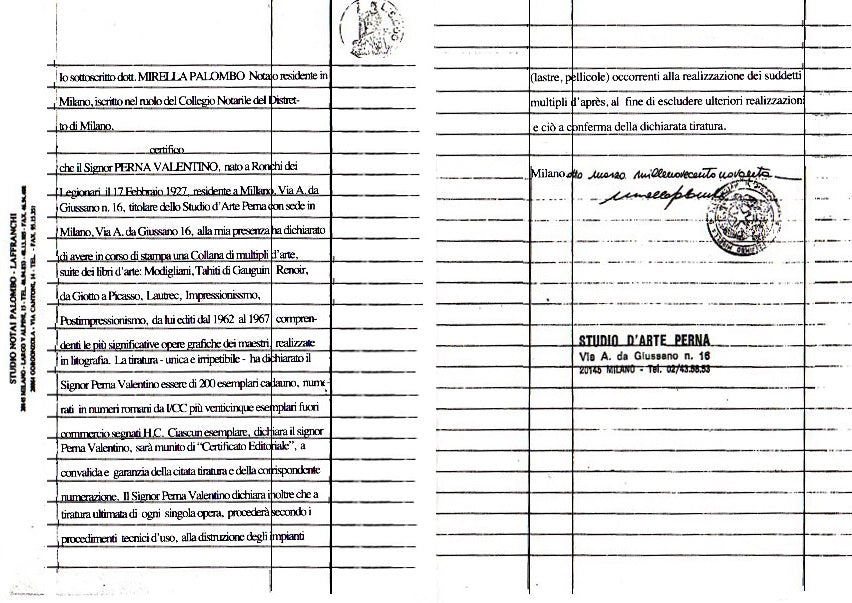 Io sottoscritto dott. MIRELLA PALOMBO Notaio residente in
Milano, iscritto nel ruolo del Collegio Notarile del Distret-
to di Milano,
certifico
che il Signor PERNA VALENTINO, nato a Ronchi dei
Legionari, il 17 Febbraio 1927, residente a Millano, Via A. da
Giussano n. 16, titolare dello Studio d'Arte Perna con sede in
Milano, Via A. da Giussano 16, alla mia presenza ha dichiarato
di avere in corso di stampa una Collana di multipli d'arte,
suite dei libri d'arte: Modigliani, Tahiti di Gauguin Renoir,
da Giotto a Picasso, Lautrec, Impressionissmo,
Postimpressionismo, da lui editi dal 1962 al 1967 compren-
denti le più significative opere grafiche dei maestri, realizzate
in litografia. La tiratura - unica e irripetibile - ha dichiarato il
Signor Perna Valentino essere di 200 esemplari cadauno, nume-
rati in numeri romani da I/CC più venticinque esemplari fuori
commercio segnati H.C. Ciascun esemplare, dichiara il signor
Perna Valentino, sarà munito di "Certificato Editoriale", a
convalida e garanzia della citata tiratura e della corrispondente
numerazione. Il Signor Perna Valentino dichiara inoltre che a
tiratura ultimata di ogni singola opera, procederà secondo i
procedimenti tecnici d'uso, alla distruzione degli impianti
STUDIO NOTAI PALOMBO - LAFFRANCHI
(lastre, pellicole) occorrenti alla realizzazione dei suddetti
multipli d'après, al fine di escludere ulteriori realizzazioni
e ciò a conferma della dichiarata tiratura.
Milano otto marzo millenovecentonovanta
STUDIO D'ARTE PERNA
Via A. da Giussano n. 16
20145 MILANO - Tel. 02/43.86.53